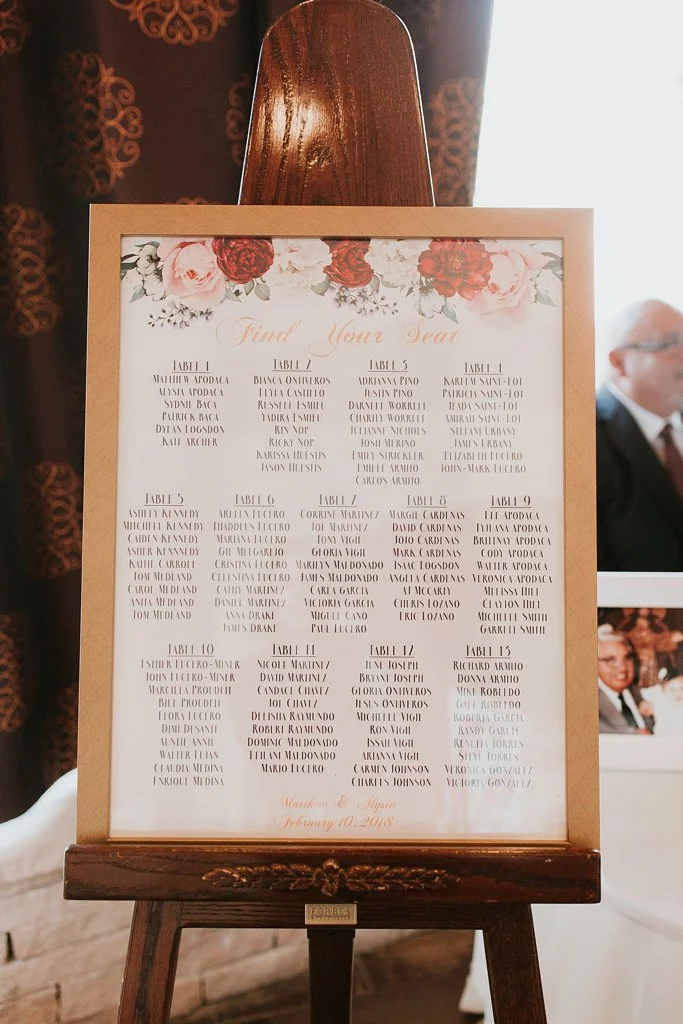 Find Your Seat
TABLE 1
MATTHEW APODACA
ALYSIA APODACA
SYDNIE BACA
PATRICK BACA
DYLAN LOGSDON
KATE ARCHER
TABLE 2
BIANCA ONTIVEROS
LEYLA CASTILLO
RUSSELL ESMIEU
YADIRA ESMIEU
RIN NOP
RICKY NOP
KARISSA HUISTIS
JASON HUISTIS
TABLE 3
ADRIANNA PINO
JUSTIN PINO
DARNELL WORRELL
CHARITY WORRELL
JULIANNE NICHOLS
JOSH MERINO
EMILY STRICKLER
EMILEE ARMIJO
CARLOS ARMIJO
TABLE 4
KAREEM SAINT-LOT
PATRICIA SAINT-LOT
JEADA SAINT-LOT
AMIRAH SAINT-LOT
STEFANI URBANY
JAMES URBANY
ELIZABETH LUCERO
JOHN-MARK LUCERO
TABLE 5
ASHLEY KENNEDY
MITCHELL KENNEDY
CAIDEN KENNEDY
ASHER KENNNEDY
KATIE CARROLL
TOM MEDLAND
CAROL MEDLAND
ANITA MEDLAND
TOM MEDLAND
TABLE 6
ARLEEN LUCERO
THADDEUS LUCERO
MARIANA LUCERO
GIL MELGAREJO
CRISTINA LUCERO
CELESTINA LUCERO
CATHY MARTINEZ
DANIEL MARTINEZ
ANNA DRAKE
JAMES DRAKE
TABLE 7
CORRINE MARTINEZ
JOE MARTINEZ
TONY VIGIL
GLORIA VIGIL
MARILYN MALDONADO
JAMES MALDONADO
CARLA GARCIA
VICTORIA GARCIA
MIGUEL CANO
PAUL LUCERO
TABLE 8
MARGIE CARDENAS
DAVID CARDENAS
JOJO CARDENAS
MARK CARDENAS
ISAAC LOGSDON
ANGELA CARDENAS
AJ MCCARTY
CHERIS LOZANO
ERIC LOZANO
TABLE 9
LEE APODACA
TYJUANA APODACA
BRITTNAY APODACA
CODY APODACA
WALTER APODACA
VERONICA APODACA
MELISSA HILL
CLAYTON HILL
MICHELLE SMITH
GARRETT SMITH
TABLE 10
ESTHER LUCERO-MINER
JOHN LUCERO-MINER
MARCELLA PROUDFIT
BILL PROUDFIT
FLORA LUCERO
DIMI DESANTI
AUNTIE ANNIE
WALTER LUJAN
CLAUDIA MEDINA
ENRIQUE MEDINA
TABLE 11
NICOLE MARTINEZ
DAVID MARTINEZ
CANDACE CHAVEZ
JOE CHAVEZ
DELISHA RAYMUNDO
ROBERT RAYMUNDO
DOMINIC MALDONADO
ETHLANI MALDONADO
MARIO LUCERO
TABLE 12
JUNE JOSEPH
BRYANT JOSEPH
GLORIA ONTIVEROS
JESUS ONTIVEROS
MICHELLE VIGIL
RON VIGIL
ISSAH VIGIL
ARIANNA VIGIL
CARMEN JOHNSON
CHARLES JOHNSON
TABLE 13
RICHARD ARMIJO
DONNA ARMIJO
MIKE ROBLEDO
GALE ROBLEDO
ROBERTA GARCIA
RANDY GARCIA
RENETTA TORRES
STEVE TORRES
VERONICA GONZALEZ
VICTORIA GONZALEZ
Matthew & Alysia
February 10, 2018
FORBES